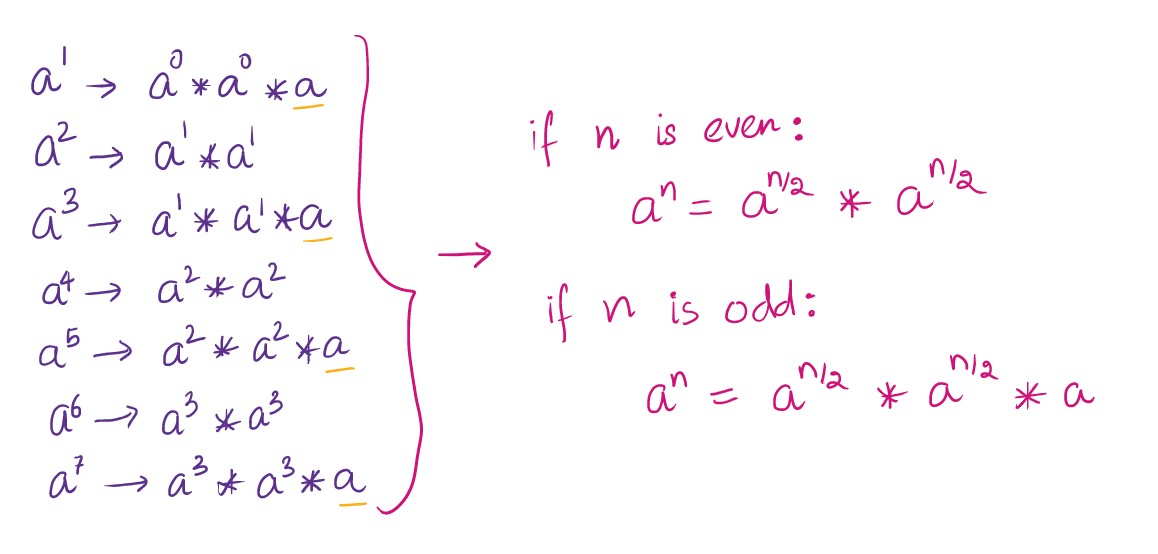 a¹ → a⁰ * a⁰ * a
a² → a¹ * a¹
a³ → a¹ * a¹ * a
a⁴ → a² * a²
a⁵ → a² * a² * a
a⁶ → a³ * a³
a⁷ → a³ * a³ * a
→
if n is even:
aⁿ = a^(n/2) * a^(n/2)
if n is odd:
aⁿ = a^(n/2) * a^(n/2) * a